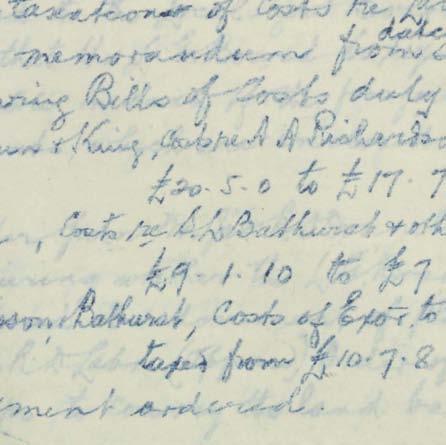 taxation of Costs re
memorandum from
dated
Bills of Costs duly
& King, Costs re A A Richardso
£20. 5. 0 to £17. 7
Costs re S. L Bathurst & oth
£9. 1. 10 to £7
son, Bathurst, Costs of Exor. to
taxed from £10. 7. 8
ment ordered.